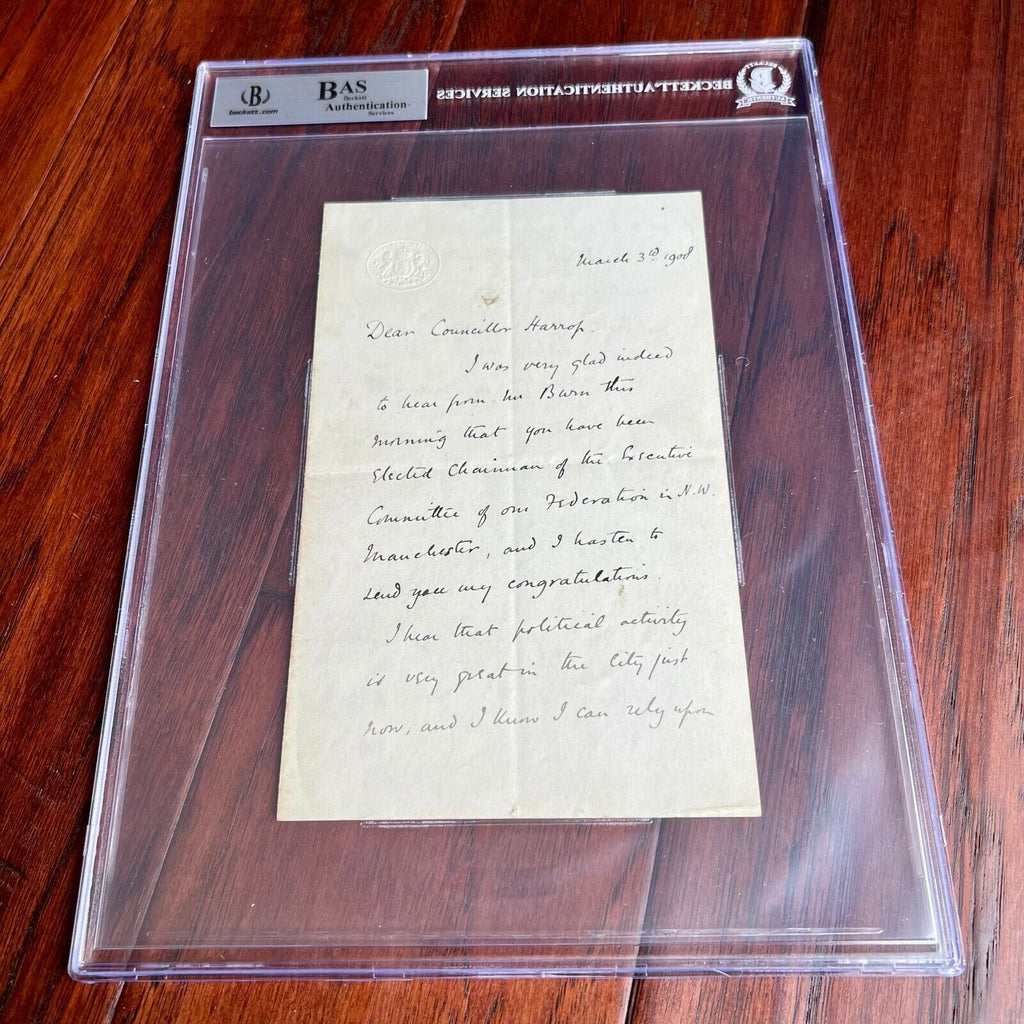 B
beckett.com
BAS
Beckett
Authentication
Services
BECKETT AUTHENTICATION SERVICES
B
March 3rd 1908
Dear Councillor Harrop.
I was very glad indeed
to hear from Mr Burn this
morning that you have been
Elected Chairman of the Executive
Committee of our Federation in N.W.
Manchester, and I hasten to
send you my congratulations.
I hear that political activity
is very great in the City just
now, and I know I can rely upon